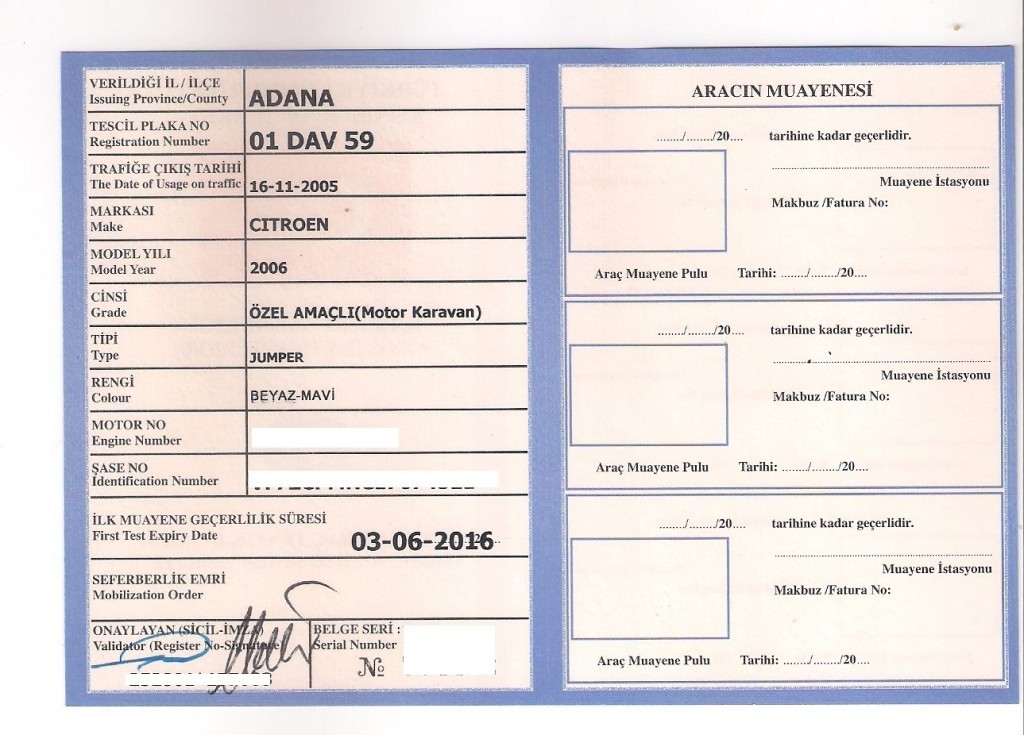 VERİLDİĞİ İL / İLÇE
Issuing Province/County
ADANA
TESCİL PLAKA NO
Registration Number
01 DAV 59
TRAFİĞE ÇIKIŞ TARİHİ
The Date of Usage on traffic
16-11-2005
MARKASI
Make
CITROEN
MODEL YILI
Model Year
2006
CİNSİ
Grade
ÖZEL AMAÇLI(Motor Karavan)
TİPİ
Type
JUMPER
RENGİ
Colour
BEYAZ-MAVİ
MOTOR NO
Engine Number
ŞASE NO
İdentification Number
İLK MUAYENE GEÇERLİLİK SÜRESİ
First Test Expiry Date
03-06-2016
SEFERBERLİK EMRİ
Mobilization Order
ONAYLAYAN (SİCİL-İMZA)
Validator (Register No-Signature)
BELGE SERİ :
Serial Number
№
ARACIN MUAYENESİ
......./......../20.... tarihine kadar geçerlidir.
Muayene İstasyonu
Makbuz /Fatura No:
Araç Muayene Pulu Tarihi: ......./......./20....
......./......../20.... tarihine kadar geçerlidir.
Muayene İstasyonu
Makbuz /Fatura No:
Araç Muayene Pulu Tarihi: ......./......./20....
......./......../20.... tarihine kadar geçerlidir.
Muayene İstasyonu
Makbuz /Fatura No:
Araç Muayene Pulu Tarihi: ......./......./20....